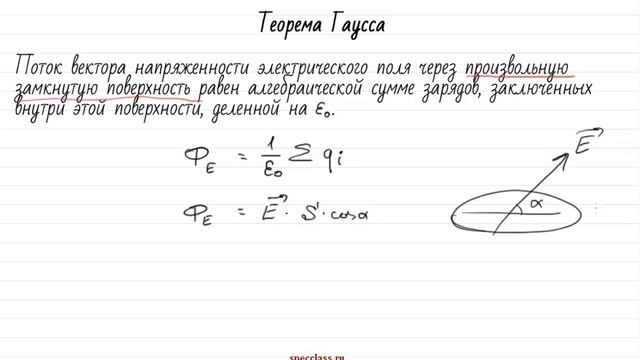 Теорема Гаусса
Поток вектора напряженности электрического поля через произвольную
замкнутую поверхность равен алгебраической сумме зарядов, заключенных
внутри этой поверхности, деленной на ε₀.
Φ_E = 1/ε₀ Σ qi
E⃗
α
Φ_E = E⃗ · S · cosα
specclass.ru